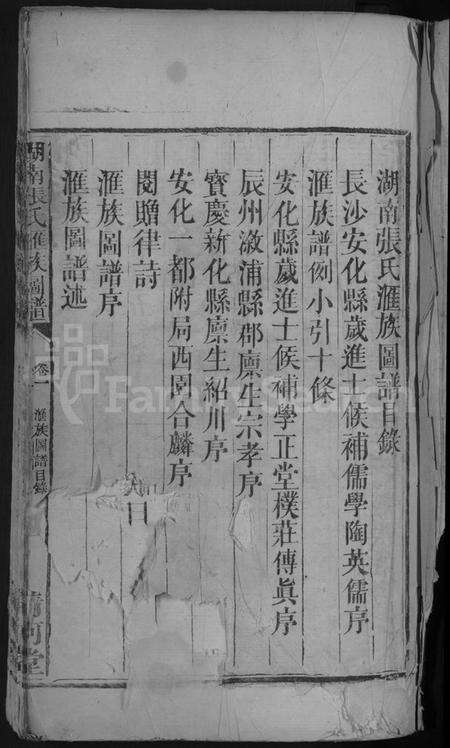 湖南張氏滙族圖譜目錄
長沙安化縣歲進士候補儒學陶英儒序
滙族譜例小引十條
安化縣歲進士候補學正堂樸莊傳眞序
辰州溆浦縣郡廩生宗孝序
寳慶新化縣廩生紹川序
安化一都附局西園合麟序
閱贈律詩
滙族圖譜序
滙族圖譜述
湖南張氏滙族圖譜
卷一
滙族圖譜目錄
清河堂